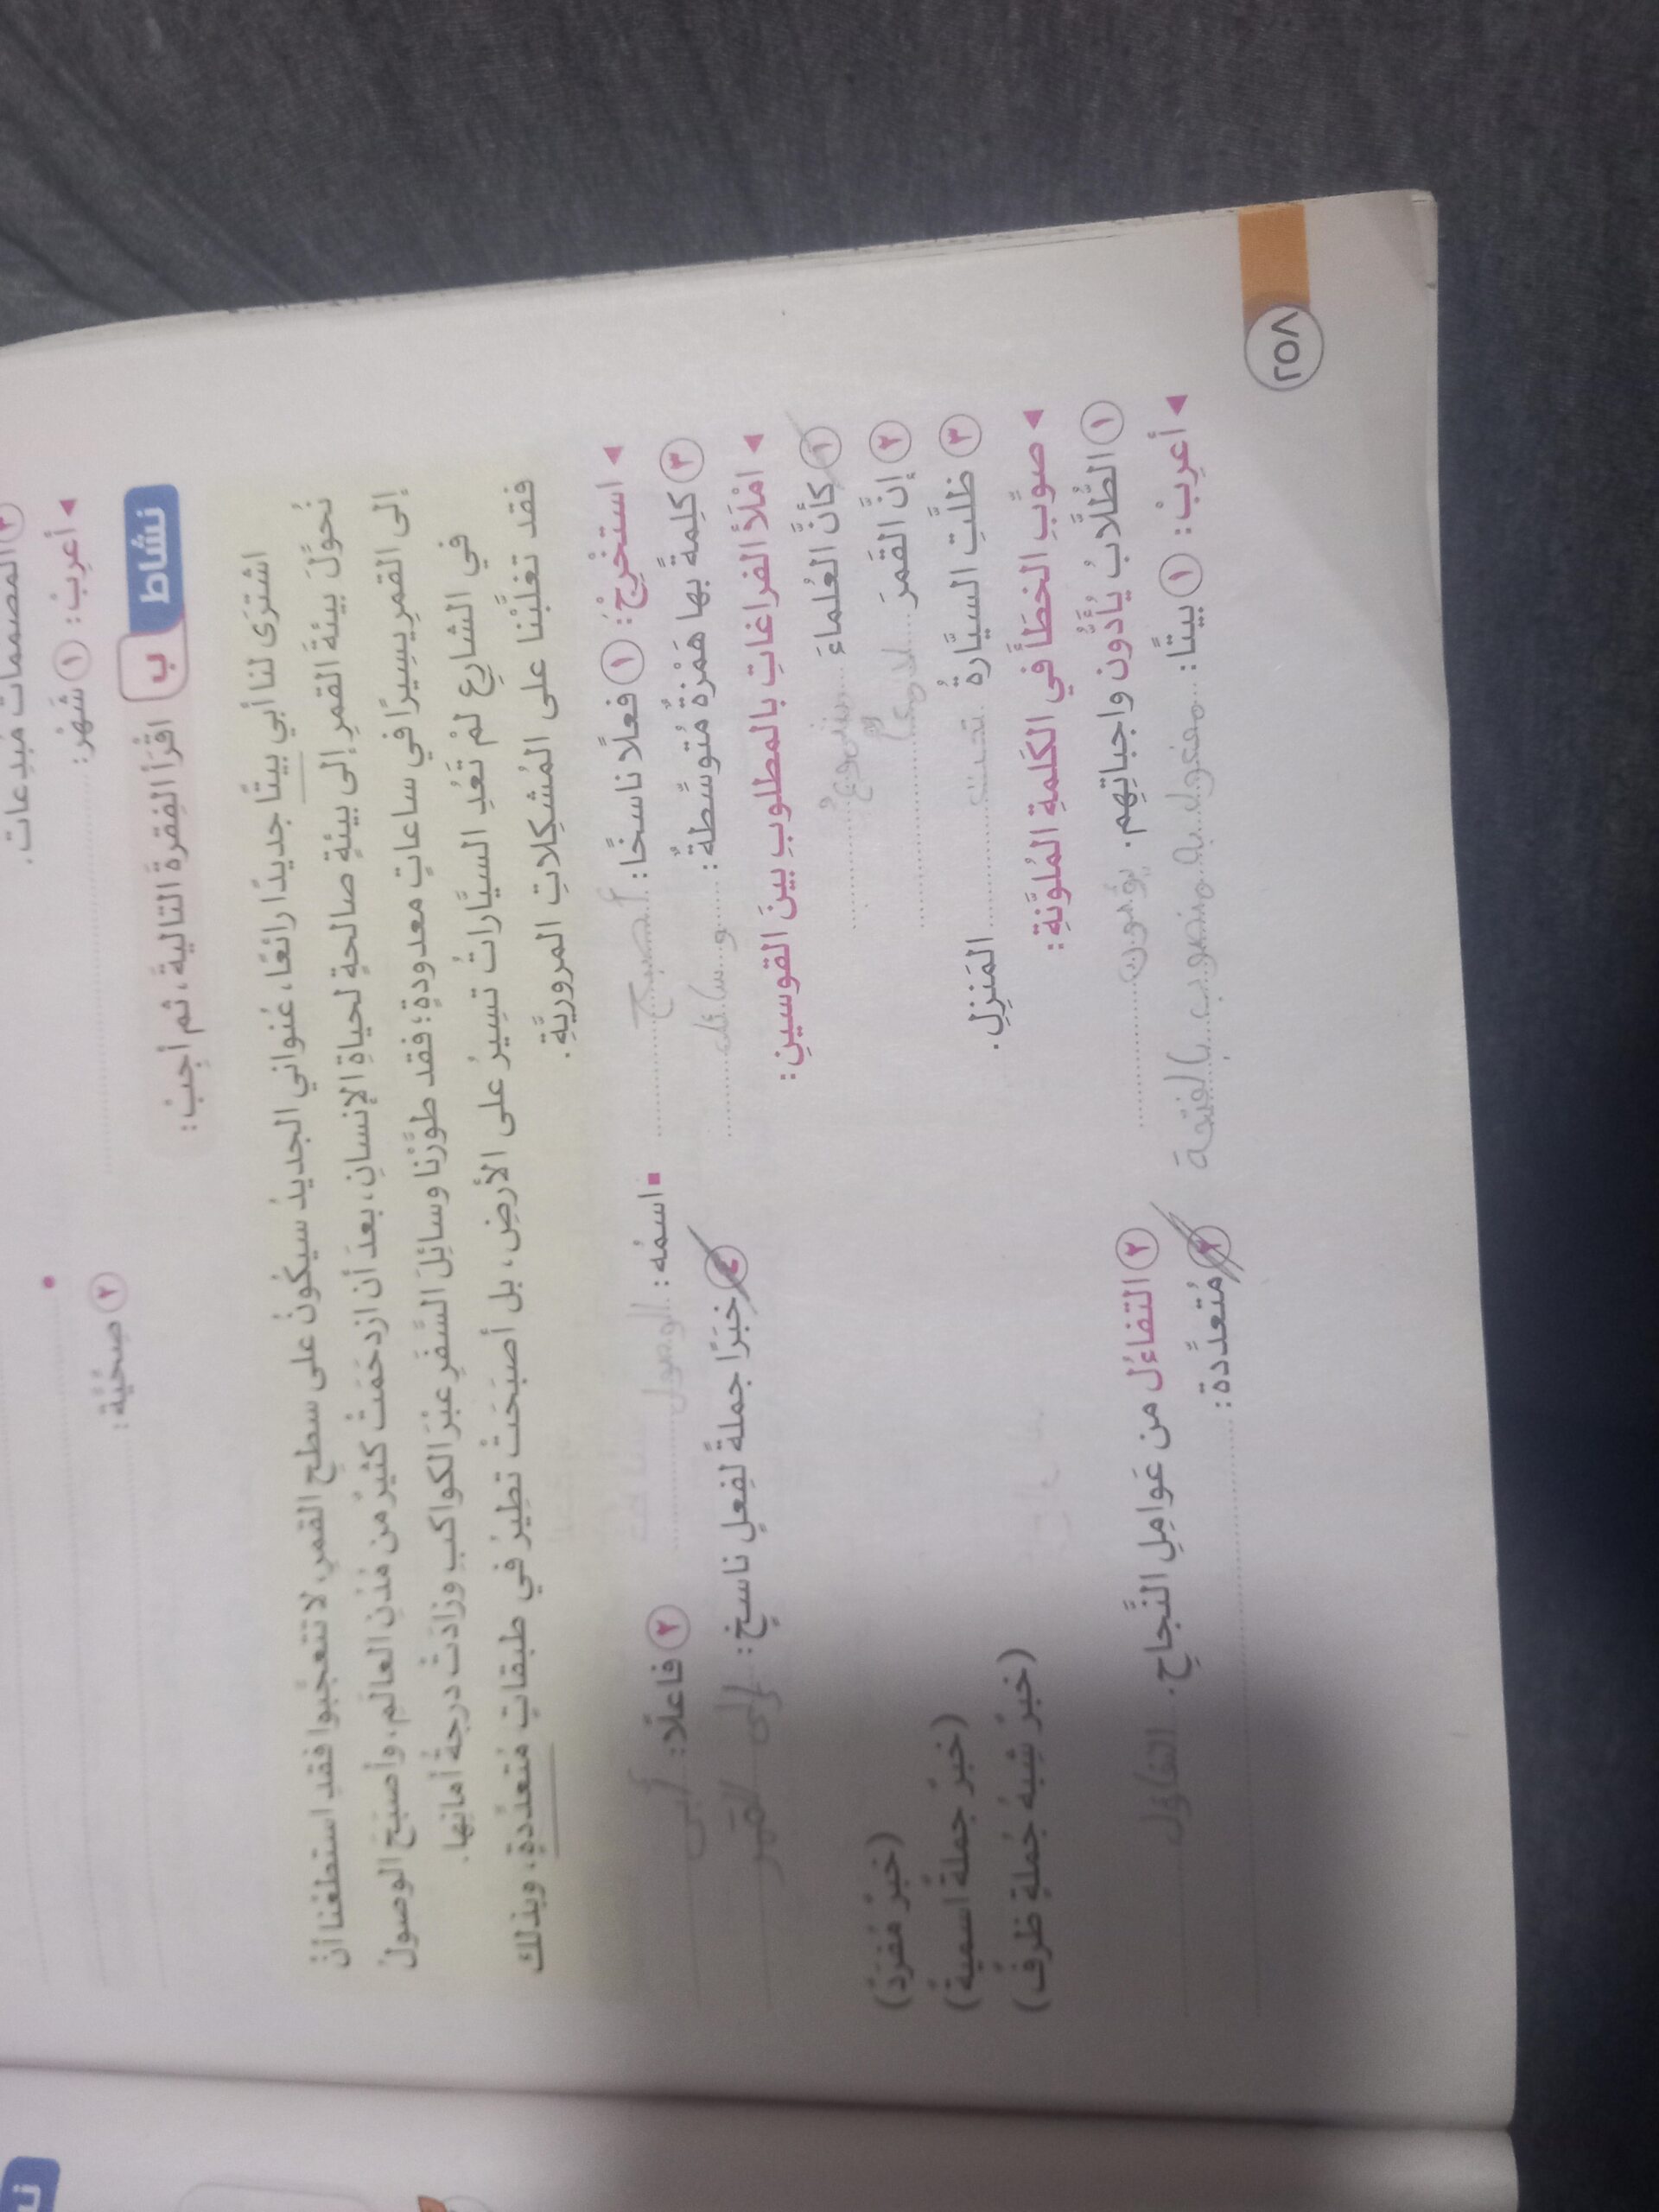 ٣ المصممات مبدعات.
◄ أعرِبْ: ١ شَهْر:
٢ صِحِّيَّة:
نشاط ب اقْرَأِ الفِقرةَ التاليةَ، ثم أجِبْ:
اشترَى لنا أبي بيتًا جديدًا رائعًا، عُنواني الجديدُ سيكُونُ على سطحِ القمرِ، لا تتعجَّبوا فقدِ استطعْنا أنْ
نُحوِّلَ بيئةَ القمرِ إلى بيئةٍ صالحةٍ لحياةِ الإنسانِ، بعدَ أن ازدحَمَتْ كثيرٌ من مُدُنِ العالَمِ، وأصبَحَ الوصولُ
إلى القمرِ يسيرًا في ساعاتٍ معدودةٍ؛ فقد طوَّرْنا وسائِلَ السَّفَرِ عبْرَ الكواكبِ وزادَتْ درجةُ أمانِها.
في الشارعِ لمْ تَعُدِ السيَّاراتُ تسيرُ على الأرضِ، بل أصبَحَتْ تطيرُ في طبقاتٍ مُتعدِّدةٍ، وبذلك
فقد تغلَّبْنا على المُشكِلاتِ المروريَّةِ.
◄ استخْرِجْ: ١ فعلًا ناسخًا: أصبح ▪ اسمُه: الوصول ٢ فاعلًا: أبي
٣ كلِمةً بها هَمْزةٌ مُتوسِّطةٌ: وسائل ٤ خبَرًا جملةً لفِعلٍ ناسخٍ: إلى القمر
◄ امْلَأ الفراغاتِ بالمطلوبِ بينَ القوسينِ:
١ كأنَّ العُلماءَ (خبرٌ مُفرَدٌ)
٢ إنَّ القمرَ (خبرٌ جملةٌ اسميةٌ)
٣ ظلَّتِ السيَّارةُ تحت المَنزِلِ. (خبرٌ شِبهُ جُملةٍ ظرفٌ)
◄ صوِّبِ الخطَأَ في الكَلمةِ المُلوَّنةِ:
١ الطُّلَّابُ يُأَدُّون واجباتِهم. يؤدون ٢ التفاءُل من عَوامِلِ النَّجاحِ. التفاؤل
◄ أعرِبْ: ١ بيتًا: مفعول به منصوب بالفتحة ٢ مُتعدِّدة:
٢٥٨